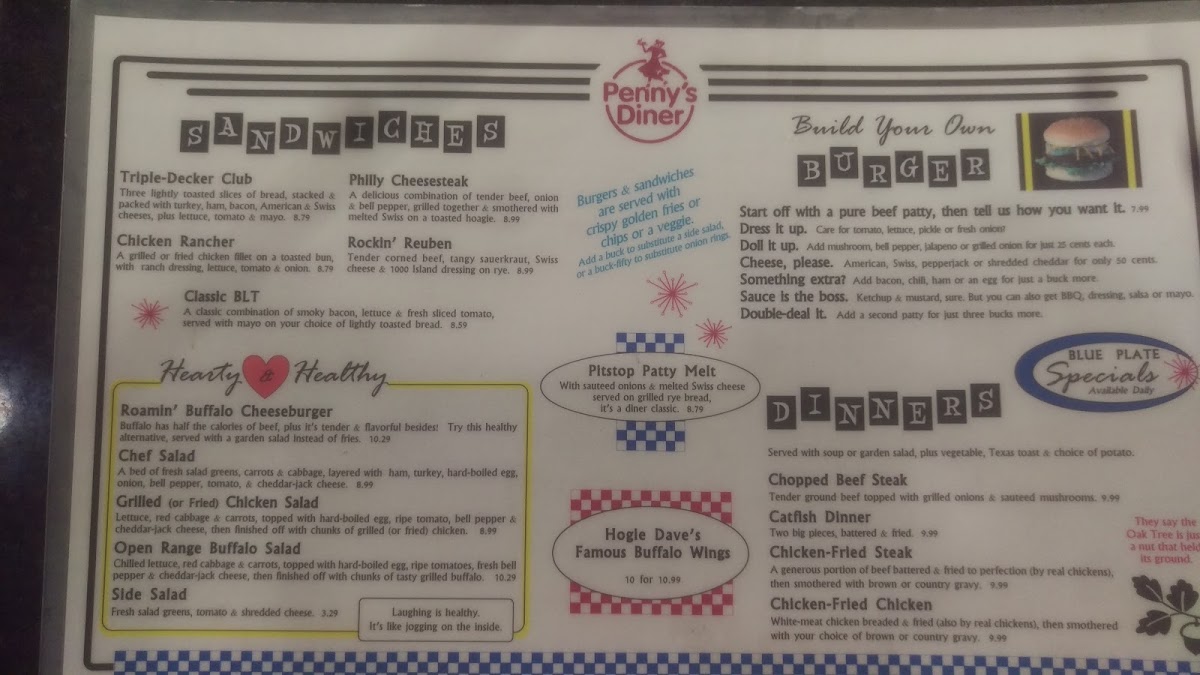 Penny's
Diner
SANDWICHES
Triple-Decker Club
Three lightly toasted slices of bread, stacked &
packed with turkey, ham, bacon, American & Swiss
cheeses, plus lettuce, tomato & mayo. 8.79
Philly Cheesesteak
A delicious combination of tender beef, onion
& bell pepper, grilled together & smothered with
melted Swiss on a toasted hoagie. 8.99
Chicken Rancher
A grilled or fried chicken fillet on a toasted bun,
with ranch dressing, lettuce, tomato & onion. 8.79
Rockin' Reuben
Tender corned beef, tangy sauerkraut, Swiss
cheese & 1000 Island dressing on rye. 8.99
Classic BLT
A classic combination of smoky bacon, lettuce & fresh sliced tomato,
served with mayo on your choice of lightly toasted bread. 8.59
Hearty & Healthy
Roamin' Buffalo Cheeseburger
Buffalo has half the calories of beef, plus it's tender & flavorful besides! Try this healthy
alternative, served with a garden salad instead of fries. 10.29
Chef Salad
A bed of fresh salad greens, carrots & cabbage, layered with ham, turkey, hard-boiled egg,
onion, bell pepper, tomato, & cheddar-jack cheese. 8.99
Grilled (or Fried) Chicken Salad
Lettuce, red cabbage & carrots, topped with hard-boiled egg, ripe tomato, bell pepper &
cheddar-jack cheese, then finished off with chunks of grilled (or fried) chicken. 8.99
Open Range Buffalo Salad
Chilled lettuce, red cabbage & carrots, topped with hard-boiled egg, ripe tomatoes, fresh bell
pepper & cheddar-jack cheese, then finished off with chunks of tasty grilled buffalo. 10.29
Side Salad
Fresh salad greens, tomato & shredded cheese. 3.29
Laughing is healthy.
It's like jogging on the inside.
Burgers & sandwiches
are served with
crispy golden fries or
chips or a veggie.
Add a buck to substitute a side salad,
or a buck-fifty to substitute onion rings.
Pitstop Patty Melt
With sauteed onions & melted Swiss cheese
served on grilled rye bread,
it's a diner classic. 8.79
Hogie Dave's
Famous Buffalo Wings
10 for 10.99
Build Your Own
BURGER
Start off with a pure beef patty, then tell us how you want it. 7.99
Dress it up. Care for tomato, lettuce, pickle or fresh onions?
Doll it up. Add mushroom, bell pepper, jalapeno or grilled onion for just 25 cents each.
Cheese, please. American, Swiss, pepperjack or shredded cheddar for only 50 cents.
Something extra? Add bacon, chili, ham or an egg for just a buck more.
Sauce is the boss. Ketchup & mustard, sure. But you can also get BBQ, dressing, salsa or mayo.
Double-deal it. Add a second patty for just three bucks more.
BLUE PLATE
Specials
Available Daily
DINNERS
Served with soup or garden salad, plus vegetable, Texas toast & choice of potato.
Chopped Beef Steak
Tender ground beef topped with grilled onions & sauteed mushrooms. 9.99
Catfish Dinner
Two big pieces, battered & fried. 9.99
Chicken-Fried Steak
A generous portion of beef battered & fried to perfection (by real chickens),
then smothered with brown or country gravy. 9.99
Chicken-Fried Chicken
White-meat chicken breaded & fried (also by real chickens), then smothered
with your choice of brown or country gravy. 9.99
They say the
Oak Tree is jus
a nut that held
its ground.